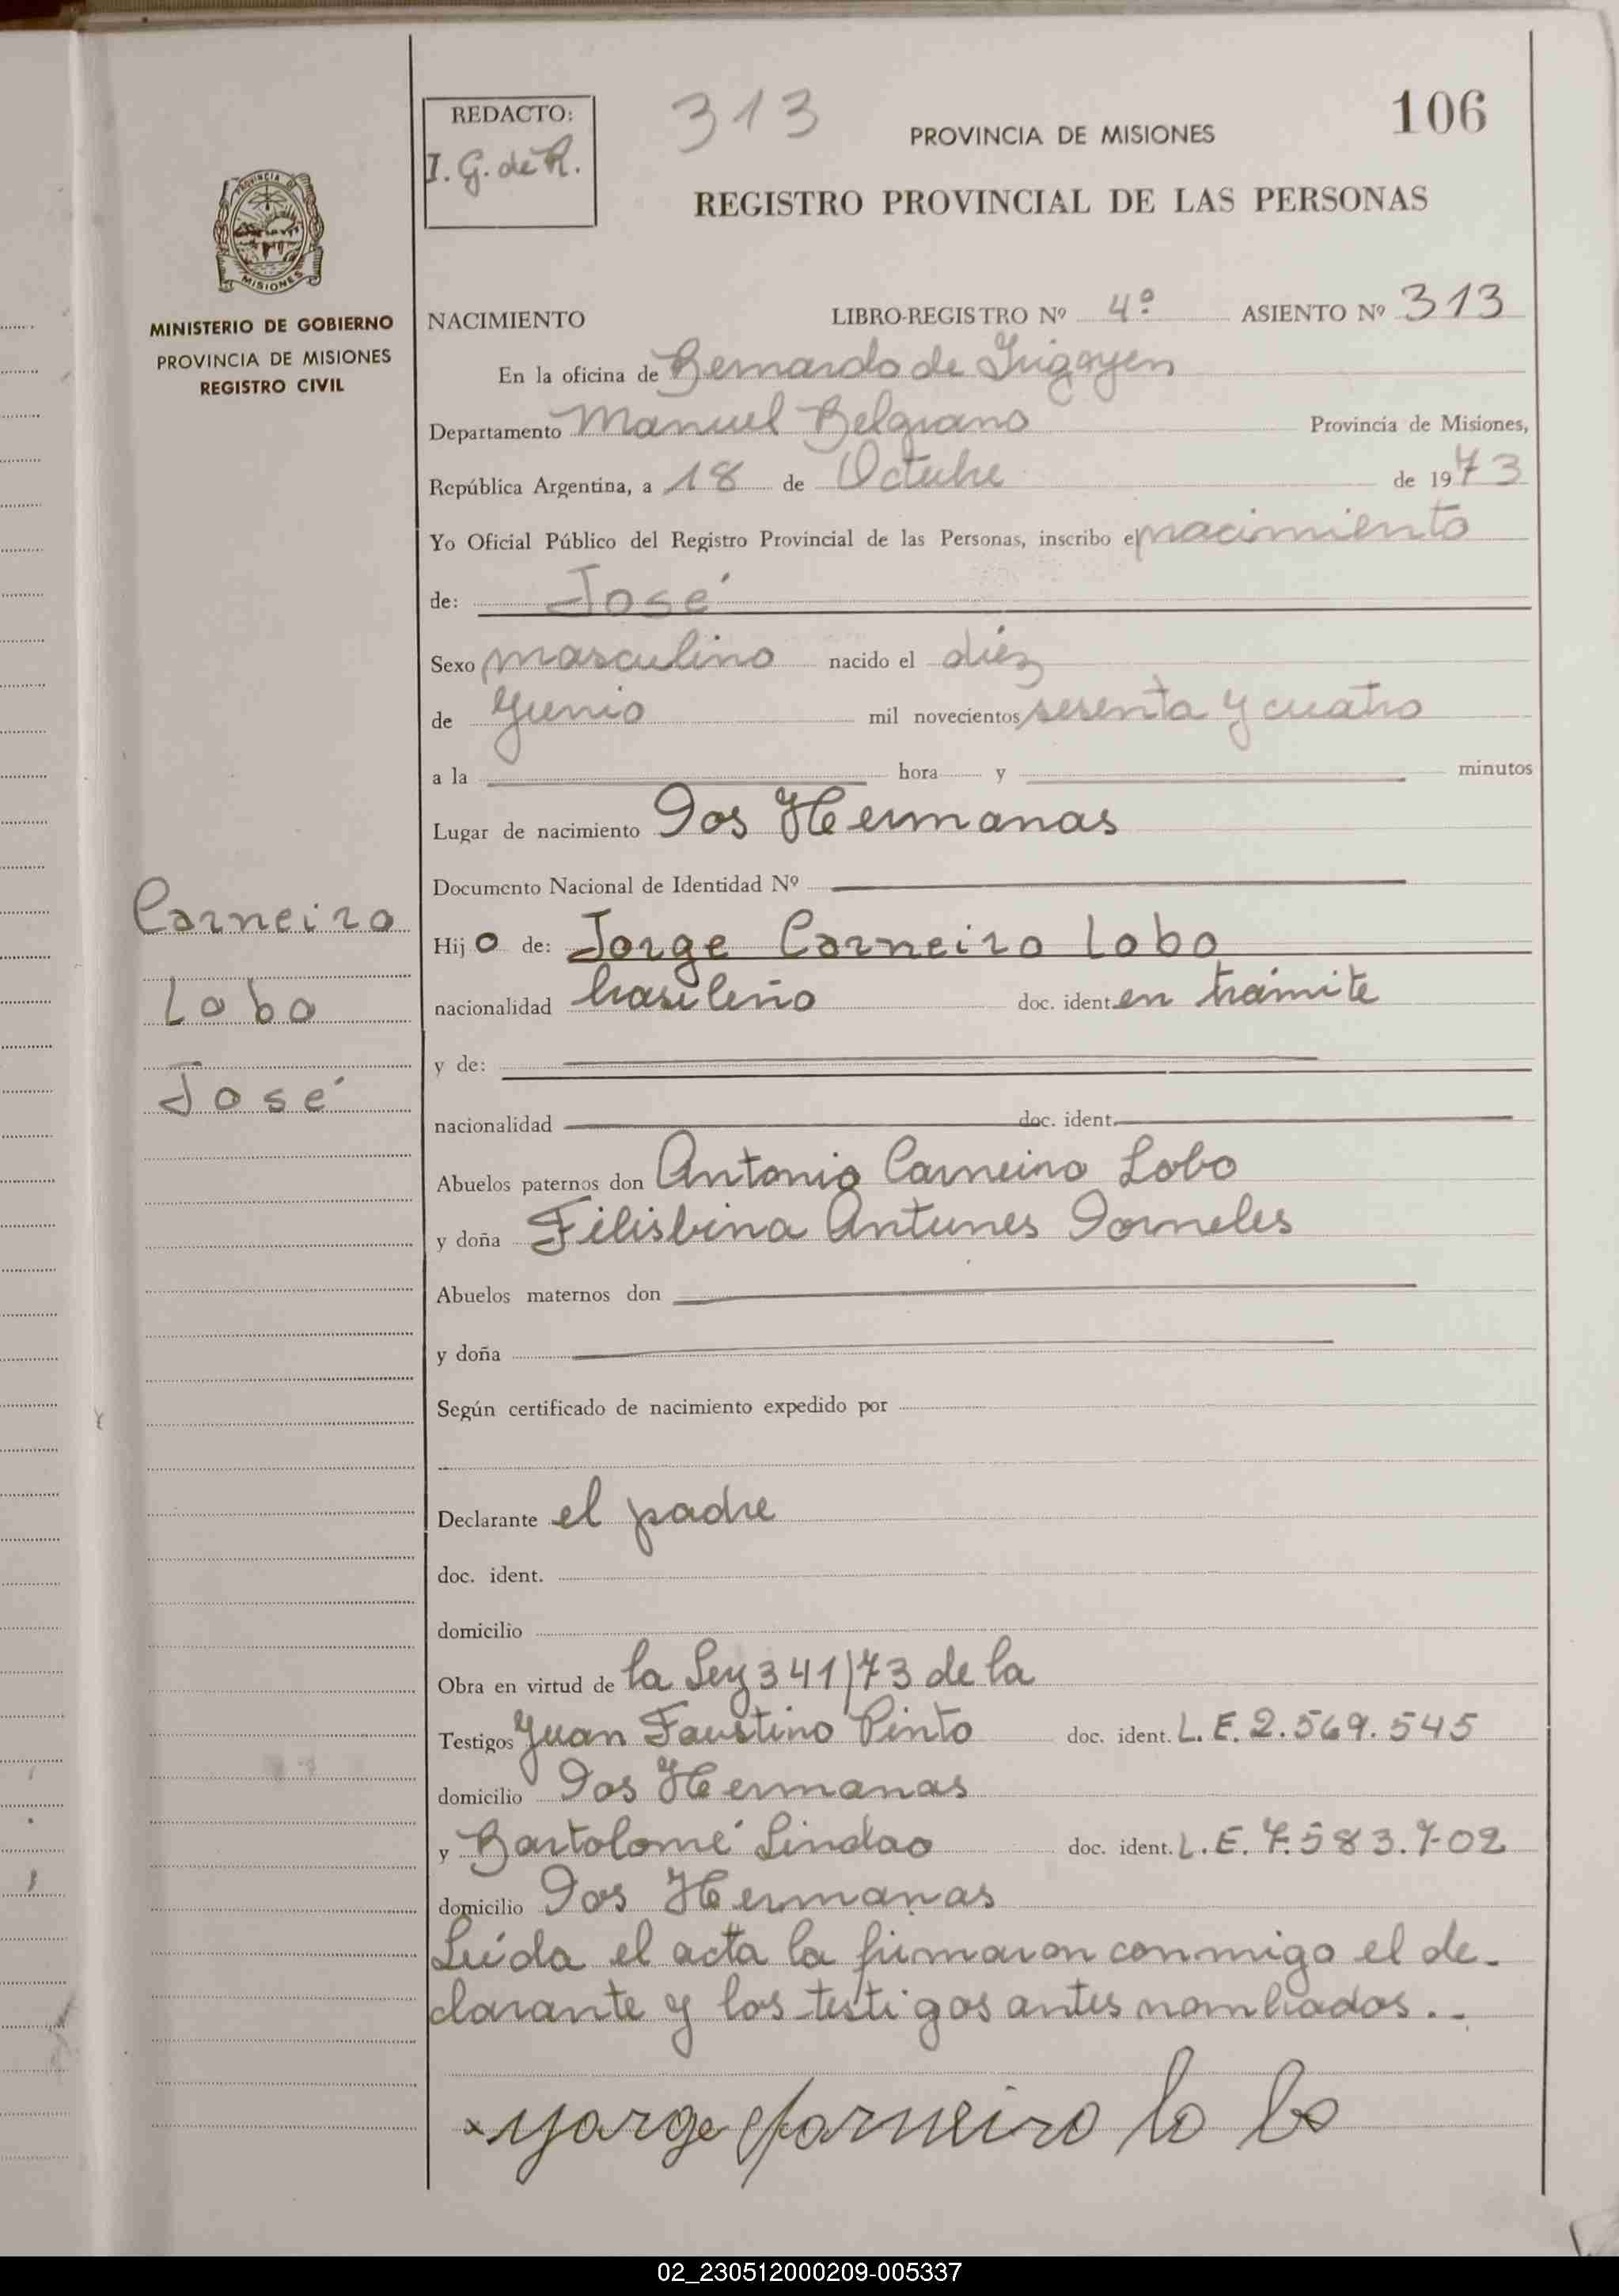 REDACTO:
I. G. de R.
313
PROVINCIA DE MISIONES
106
REGISTRO PROVINCIAL DE LAS PERSONAS
PROVINCIA DE
MISIONES
MINISTERIO DE GOBIERNO
PROVINCIA DE MISIONES
REGISTRO CIVIL
NACIMIENTO LIBRO-REGISTRO Nº 4º ASIENTO Nº 313
En la oficina de Bernardo de Irigoyen
Departamento Manuel Belgrano Provincia de Misiones,
República Argentina, a 18 de Octubre de 1973
Yo Oficial Público del Registro Provincial de las Personas, inscribo el nacimiento
de: José
Sexo masculino nacido el diéz
de Junio mil novecientos sesenta y cuatro
a la hora y minutos
Lugar de nacimiento Dos Hermanas
Documento Nacional de Identidad Nº
Carneiro
Lobo
José
Hijo de: Jorge Carneiro Lobo
nacionalidad brasileño doc. ident. en trámite
y de:
nacionalidad doc. ident.
Abuelos paternos don Antonio Carneiro Lobo
y doña Filisbina Antunes Dorneles
Abuelos maternos don
y doña
Según certificado de nacimiento expedido por
Declarante el padre
doc. ident.
domicilio
Obra en virtud de la Ley 341/73 de la
Testigos Juan Faustino Pinto doc. ident. L. E. 2.569.545
domicilio Dos Hermanas
y Bartolomé Lindao doc. ident. L. E. 7.583.702
domicilio Dos Hermanas
Leída el acta la firmaron conmigo el de-
clarante y los testigos antes nombrados..-
x Jorge Carneiro lo bo
02_230512000209-005337